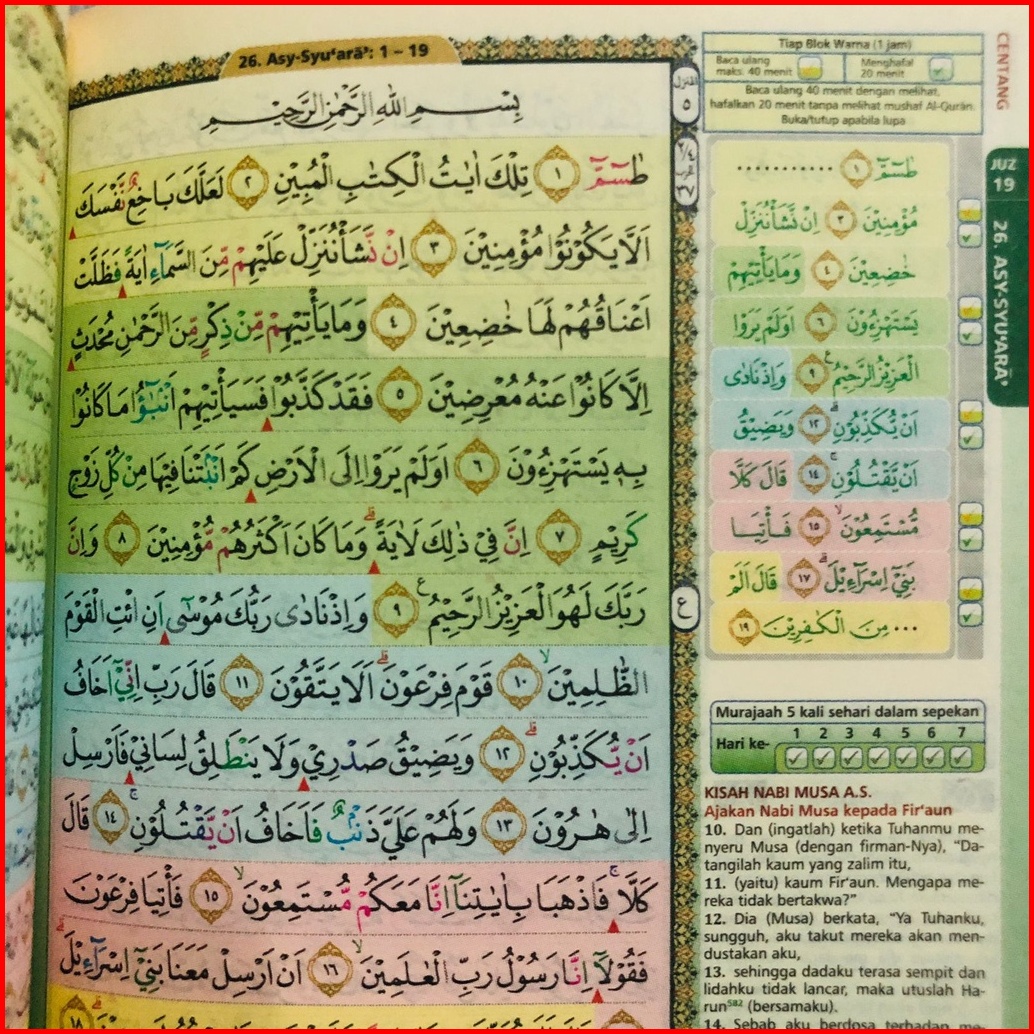 26. Asy-Syu‘arā’: 1 – 19
بِسْمِ اللّٰهِ الرَّحْمٰنِ الرَّحِيْمِ
طٰسۤمّۤ ١ تِلْكَ اٰيٰتُ الْكِتٰبِ الْمُبِيْنِ ٢ لَعَلَّكَ بَاخِعٌ نَّفْسَكَ
اَلَّا يَكُوْنُوْا مُؤْمِنِيْنَ ٣ اِنْ نَّشَأْ نُنَزِّلْ عَلَيْهِمْ مِّنَ السَّمَاۤءِ اٰيَةً فَظَلَّتْ
اَعْنَاقُهُمْ لَهَا خٰضِعِيْنَ ٤ وَمَا يَأْتِيْهِمْ مِّنْ ذِكْرٍ مِّنَ الرَّحْمٰنِ مُحْدَثٍ
اِلَّا كَانُوْا عَنْهُ مُعْرِضِيْنَ ٥ فَقَدْ كَذَّبُوْا فَسَيَأْتِيْهِمْ اَنْۢبٰۤؤُا مَا كَانُوْا
بِهٖ يَسْتَهْزِءُوْنَ ٦ اَوَلَمْ يَرَوْا اِلَى الْاَرْضِ كَمْ اَنْۢبَتْنَا فِيْهَا مِنْ كُلِّ زَوْجٍ
كَرِيْمٍ ٧ اِنَّ فِيْ ذٰلِكَ لَاٰيَةًۗ وَمَا كَانَ اَكْثَرُهُمْ مُّؤْمِنِيْنَ ٨ وَاِنَّ
رَبَّكَ لَهُوَ الْعَزِيْزُ الرَّحِيْمُ ࣖ ٩ وَاِذْ نَادٰى رَبُّكَ مُوْسٰٓى اَنِ ائْتِ الْقَوْمَ
الظّٰلِمِيْنَۙ ١٠ قَوْمَ فِرْعَوْنَۗ اَلَا يَتَّقُوْنَ ١١ قَالَ رَبِّ اِنِّيْٓ اَخَافُ
اَنْ يُّكَذِّبُوْنِۗ ١٢ وَيَضِيْقُ صَدْرِيْ وَلَا يَنْطَلِقُ لِسَانِيْ فَاَرْسِلْ
اِلٰى هٰرُوْنَ ١٣ وَلَهُمْ عَلَيَّ ذَنْۢبٌ فَاَخَافُ اَنْ يَّقْتُلُوْنِۚ ١٤ قَالَ
كَلَّاۚ فَاذْهَبَا بِاٰيٰتِنَآ اِنَّا مَعَكُمْ مُّسْتَمِعُوْنَۙ ١٥ فَأْتِيَا فِرْعَوْنَ
فَقُوْلَآ اِنَّا رَسُوْلُ رَبِّ الْعٰلَمِيْنَۙ ١٦ اَنْ اَرْسِلْ مَعَنَا بَنِيْٓ اِسْرَاۤءِيْلَۗ
١٨
٥
٢/٤
٣٧
ع
Tiap Blok Warna (1 jam)
Baca ulang maks. 40 menit
Menghafal 20 menit
Baca ulang 40 menit dengan melihat,
hafalkan 20 menit tanpa melihat mushaf Al-Qurān.
Buka/tutup apabila lupa
CENTANG
JUZ
19
26. ASY-SYU‘ARĀ’
طٰسۤمّۤ ١ ...........
مُؤْمِنِيْنَ ٣ اِنْ نَّشَأْ نُنَزِّلْ
خٰضِعِيْنَ ٤ وَمَا يَأْتِيْهِمْ
يَسْتَهْزِءُوْنَ ٦ اَوَلَمْ يَرَوْا
الْعَزِيْزُ الرَّحِيْمُ ࣖ ٩ وَاِذْ نَادٰى
اَنْ يُّكَذِّبُوْنِۗ ١٢ وَيَضِيْقُ
اَنْ يَّقْتُلُوْنِۚ ١٤ قَالَ كَلَّا
مُّسْتَمِعُوْنَۙ ١٥ فَأْتِيَا
بَنِيْٓ اِسْرَاۤءِيْلَۗ ١٧ قَالَ اَلَمْ
... مِنَ الْكٰفِرِيْنَ ١٩
Murajaah 5 kali sehari dalam sepekan
Hari ke- 1 2 3 4 5 6 7
KISAH NABI MUSA A.S.
Ajakan Nabi Musa kepada Fir‘aun
10. Dan (ingatlah) ketika Tuhanmu me-
nyeru Musa (dengan firman-Nya), “Da-
tangilah kaum yang zalim itu,
11. (yaitu) kaum Fir‘aun. Mengapa me-
reka tidak bertakwa?”
12. Dia (Musa) berkata, “Ya Tuhanku,
sungguh, aku takut mereka akan men-
dustakan aku,
13. sehingga dadaku terasa sempit dan
lidahku tidak lancar, maka utuslah Ha-
run⁵⁸² (bersamaku).
14. Sebab aku berdosa terhadap me-